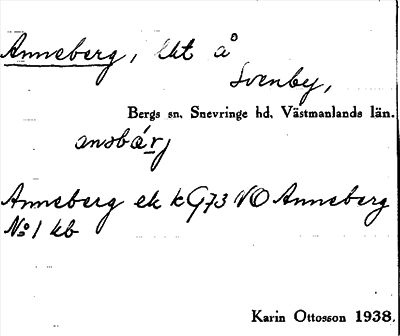 Anneberg, lht å
Svenby,
Bergs sn, Snevringe hd, Västmanlands län.
ansbárj
Anneberg ek kG73 NO Anneberg
No 1 kb
Karin Ottosson 1938.